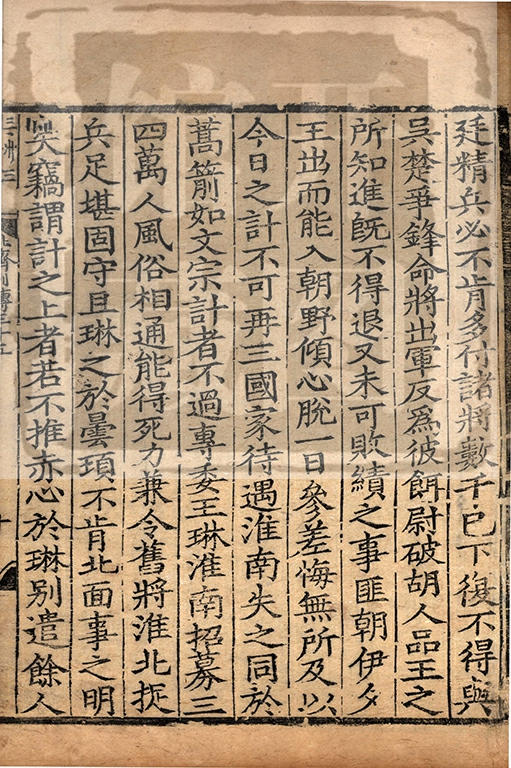 廷精兵必不肯多付諸將數千已下復不得與
吳楚爭鋒命將出軍反爲彼餌尉破胡人品王之
所知進旣不得退又未可敗績之事匪朝伊夕
王出而能入朝野傾心脫一日參差悔無所及以
今日之計不可再三國家待遇淮南失之同於
蒿箭如文宗計者不過專委王琳淮南招募三
四萬人風俗相通能得死力兼令舊將淮北捉
兵足堪固守且琳之於曇頊不肯北面事之明
矣竊謂計之上者若不推赤心於琳別遣餘人